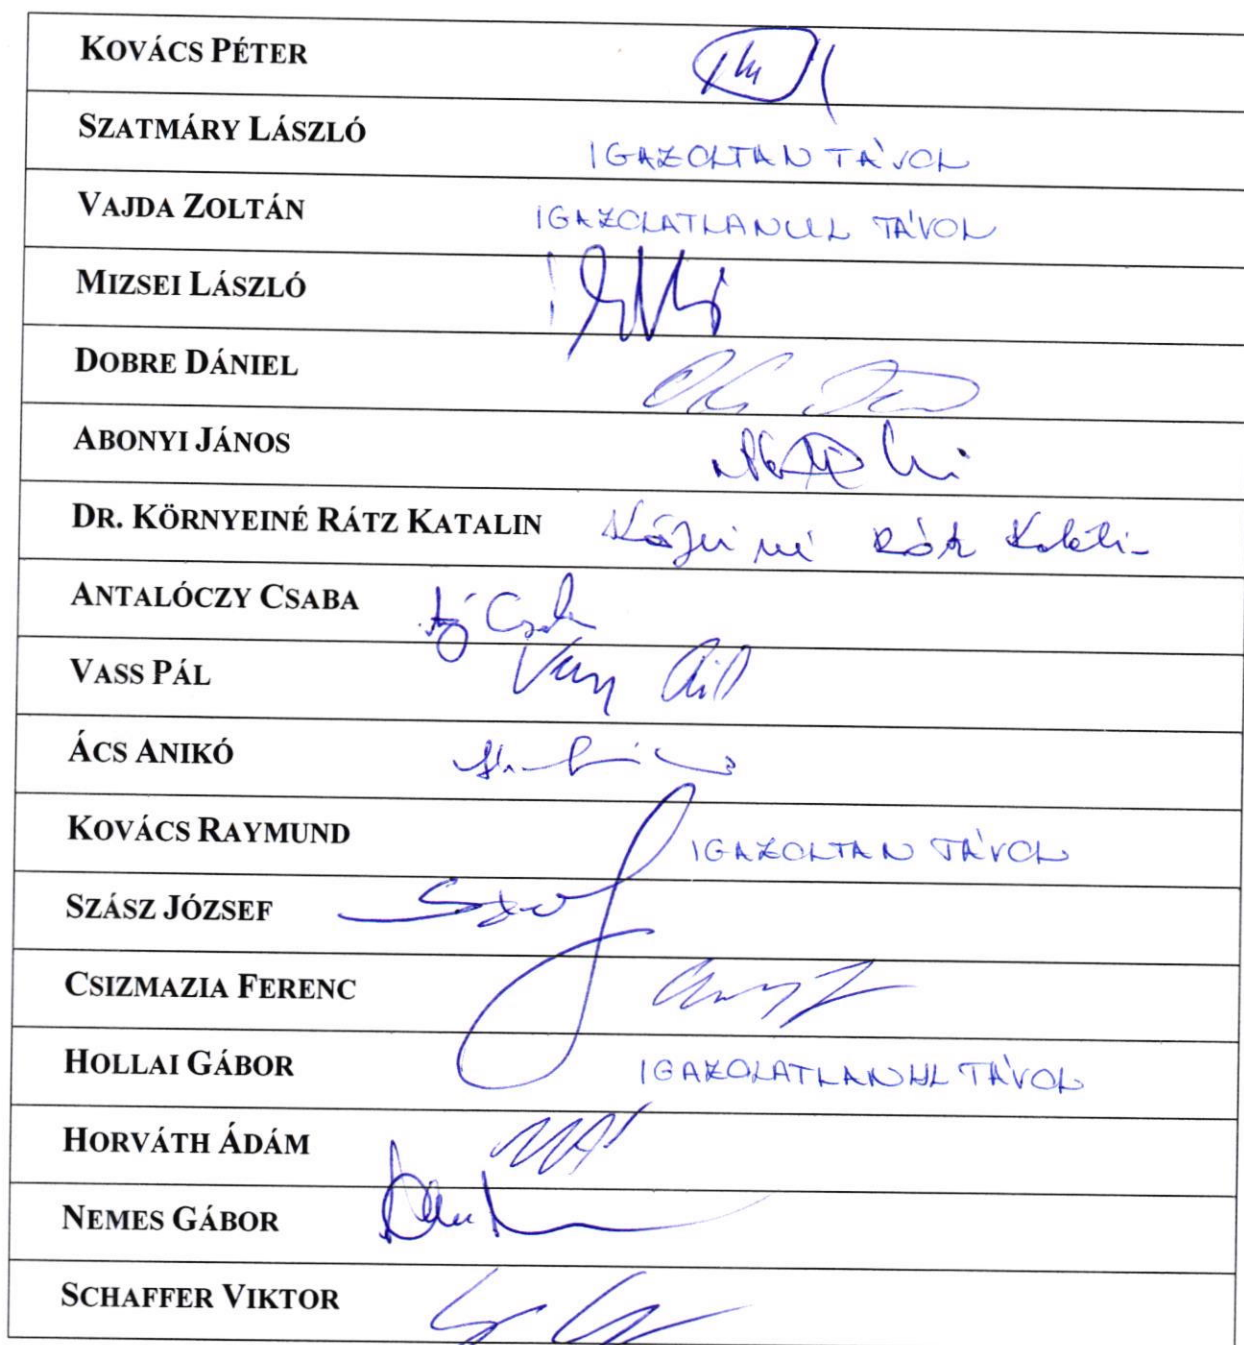 KOVÁCS PÉTER
SZATMÁRY LÁSZLÓ IGAZOLTAN TÁVOL
VAJDA ZOLTÁN IGAZOLATLANUL TÁVOL
MIZSEI LÁSZLÓ
DOBRE DÁNIEL
ABONYI JÁNOS
DR. KÖRNYEINÉ RÁTZ KATALIN
ANTALÓCZY CSABA
VASS PÁL
ÁCS ANIKÓ
KOVÁCS RAYMUND IGAZOLTAN TÁVOL
SZÁSZ JÓZSEF
CSIZMAZIA FERENC
HOLLAI GÁBOR IGAZOLATLANUL TÁVOL
HORVÁTH ÁDÁM
NEMES GÁBOR
SCHAFFER VIKTOR